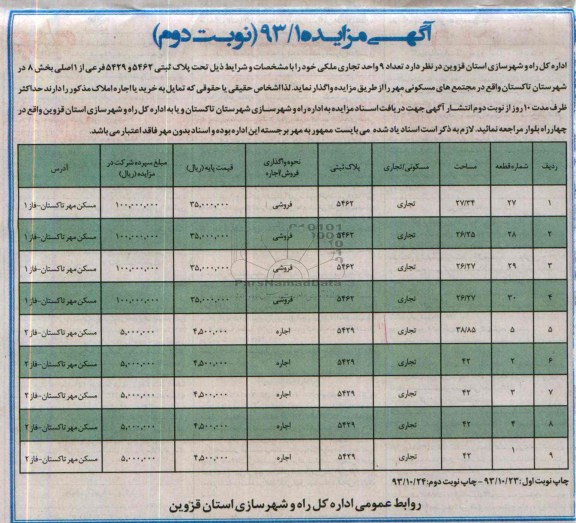 آگهی مزایده ۹۳/۱ (نوبت دوم)
اداره کل راه و شهرسازی استان قزوین در نظر دارد تعداد ۹ واحد تجاری ملکی خود را با مشخصات و شرایط ذیل تحت پلاک ثبتی ۵۴۶۲ و ۵۴۲۹ فرعی از ۱ اصلی بخش ۸ در
شهرستان تاکستان واقع در مجتمع های مسکونی مهر را از طریق مزایده واگذار نماید. لذا اشخاص حقیقی یا حقوقی که تمایل به خرید یا اجاره املاک مذکور را دارند حداکثر
ظرف مدت ۱۰ روز از نوبت دوم انتشار آگهی جهت دریافت اسناد مزایده به اداره راه و شهرسازی شهرستان تاکستان و یا به اداره کل راه و شهرسازی استان قزوین واقع در
چهارراه بلوار مراجعه نمائید. لازم به ذکر است اسناد یاد شده می بایست ممهور به مهر برجسته این اداره بوده و اسناد بدون مهر فاقد اعتبار می باشد.
ردیف شماره قطعه مساحت مسکونی/تجاری پلاک ثبتی نحوه واگذاری فروش/اجاره قیمت پایه (ریال) مبلغ سپرده شرکت در مزایده (ریال) آدرس
۱ ۲۷ ۲۷/۳۴ تجاری ۵۴۶۲ فروشی ۳۵,۰۰۰,۰۰۰ ۱۰۰,۰۰۰,۰۰۰ مسکن مهر تاکستان-فاز ۱
۲ ۲۸ ۲۶/۳۵ تجاری ۵۴۶۲ فروشی ۳۵,۰۰۰,۰۰۰ ۱۰۰,۰۰۰,۰۰۰ مسکن مهر تاکستان-فاز ۱
۳ ۲۹ ۲۶/۲۷ تجاری ۵۴۶۲ فروشی ۳۵,۰۰۰,۰۰۰ ۱۰۰,۰۰۰,۰۰۰ مسکن مهر تاکستان-فاز ۱
۴ ۳۰ ۲۶/۲۷ تجاری ۵۴۶۲ فروشی ۳۵,۰۰۰,۰۰۰ ۱۰۰,۰۰۰,۰۰۰ مسکن مهر تاکستان-فاز ۱
۵ ۵ ۳۸/۸۵ تجاری ۵۴۲۹ اجاره ۴,۵۰۰,۰۰۰ ۵,۰۰۰,۰۰۰ مسکن مهر تاکستان-فاز ۲
۶ ۲ ۴۲ تجاری ۵۴۲۹ اجاره ۴,۵۰۰,۰۰۰ ۵,۰۰۰,۰۰۰ مسکن مهر تاکستان-فاز ۲
۷ ۳ ۴۲ تجاری ۵۴۲۹ اجاره ۴,۵۰۰,۰۰۰ ۵,۰۰۰,۰۰۰ مسکن مهر تاکستان-فاز ۲
۸ ۴ ۴۲ تجاری ۵۴۲۹ اجاره ۴,۵۰۰,۰۰۰ ۵,۰۰۰,۰۰۰ مسکن مهر تاکستان-فاز ۲
۹ ۱ ۴۲ تجاری ۵۴۲۹ اجاره ۴,۵۰۰,۰۰۰ ۵,۰۰۰,۰۰۰ مسکن مهر تاکستان-فاز ۲
چاپ نوبت اول: ۹۳/۱۰/۲۳ - چاپ نوبت دوم: ۹۳/۱۰/۲۴
روابط عمومی اداره کل راه و شهرسازی استان قزوین